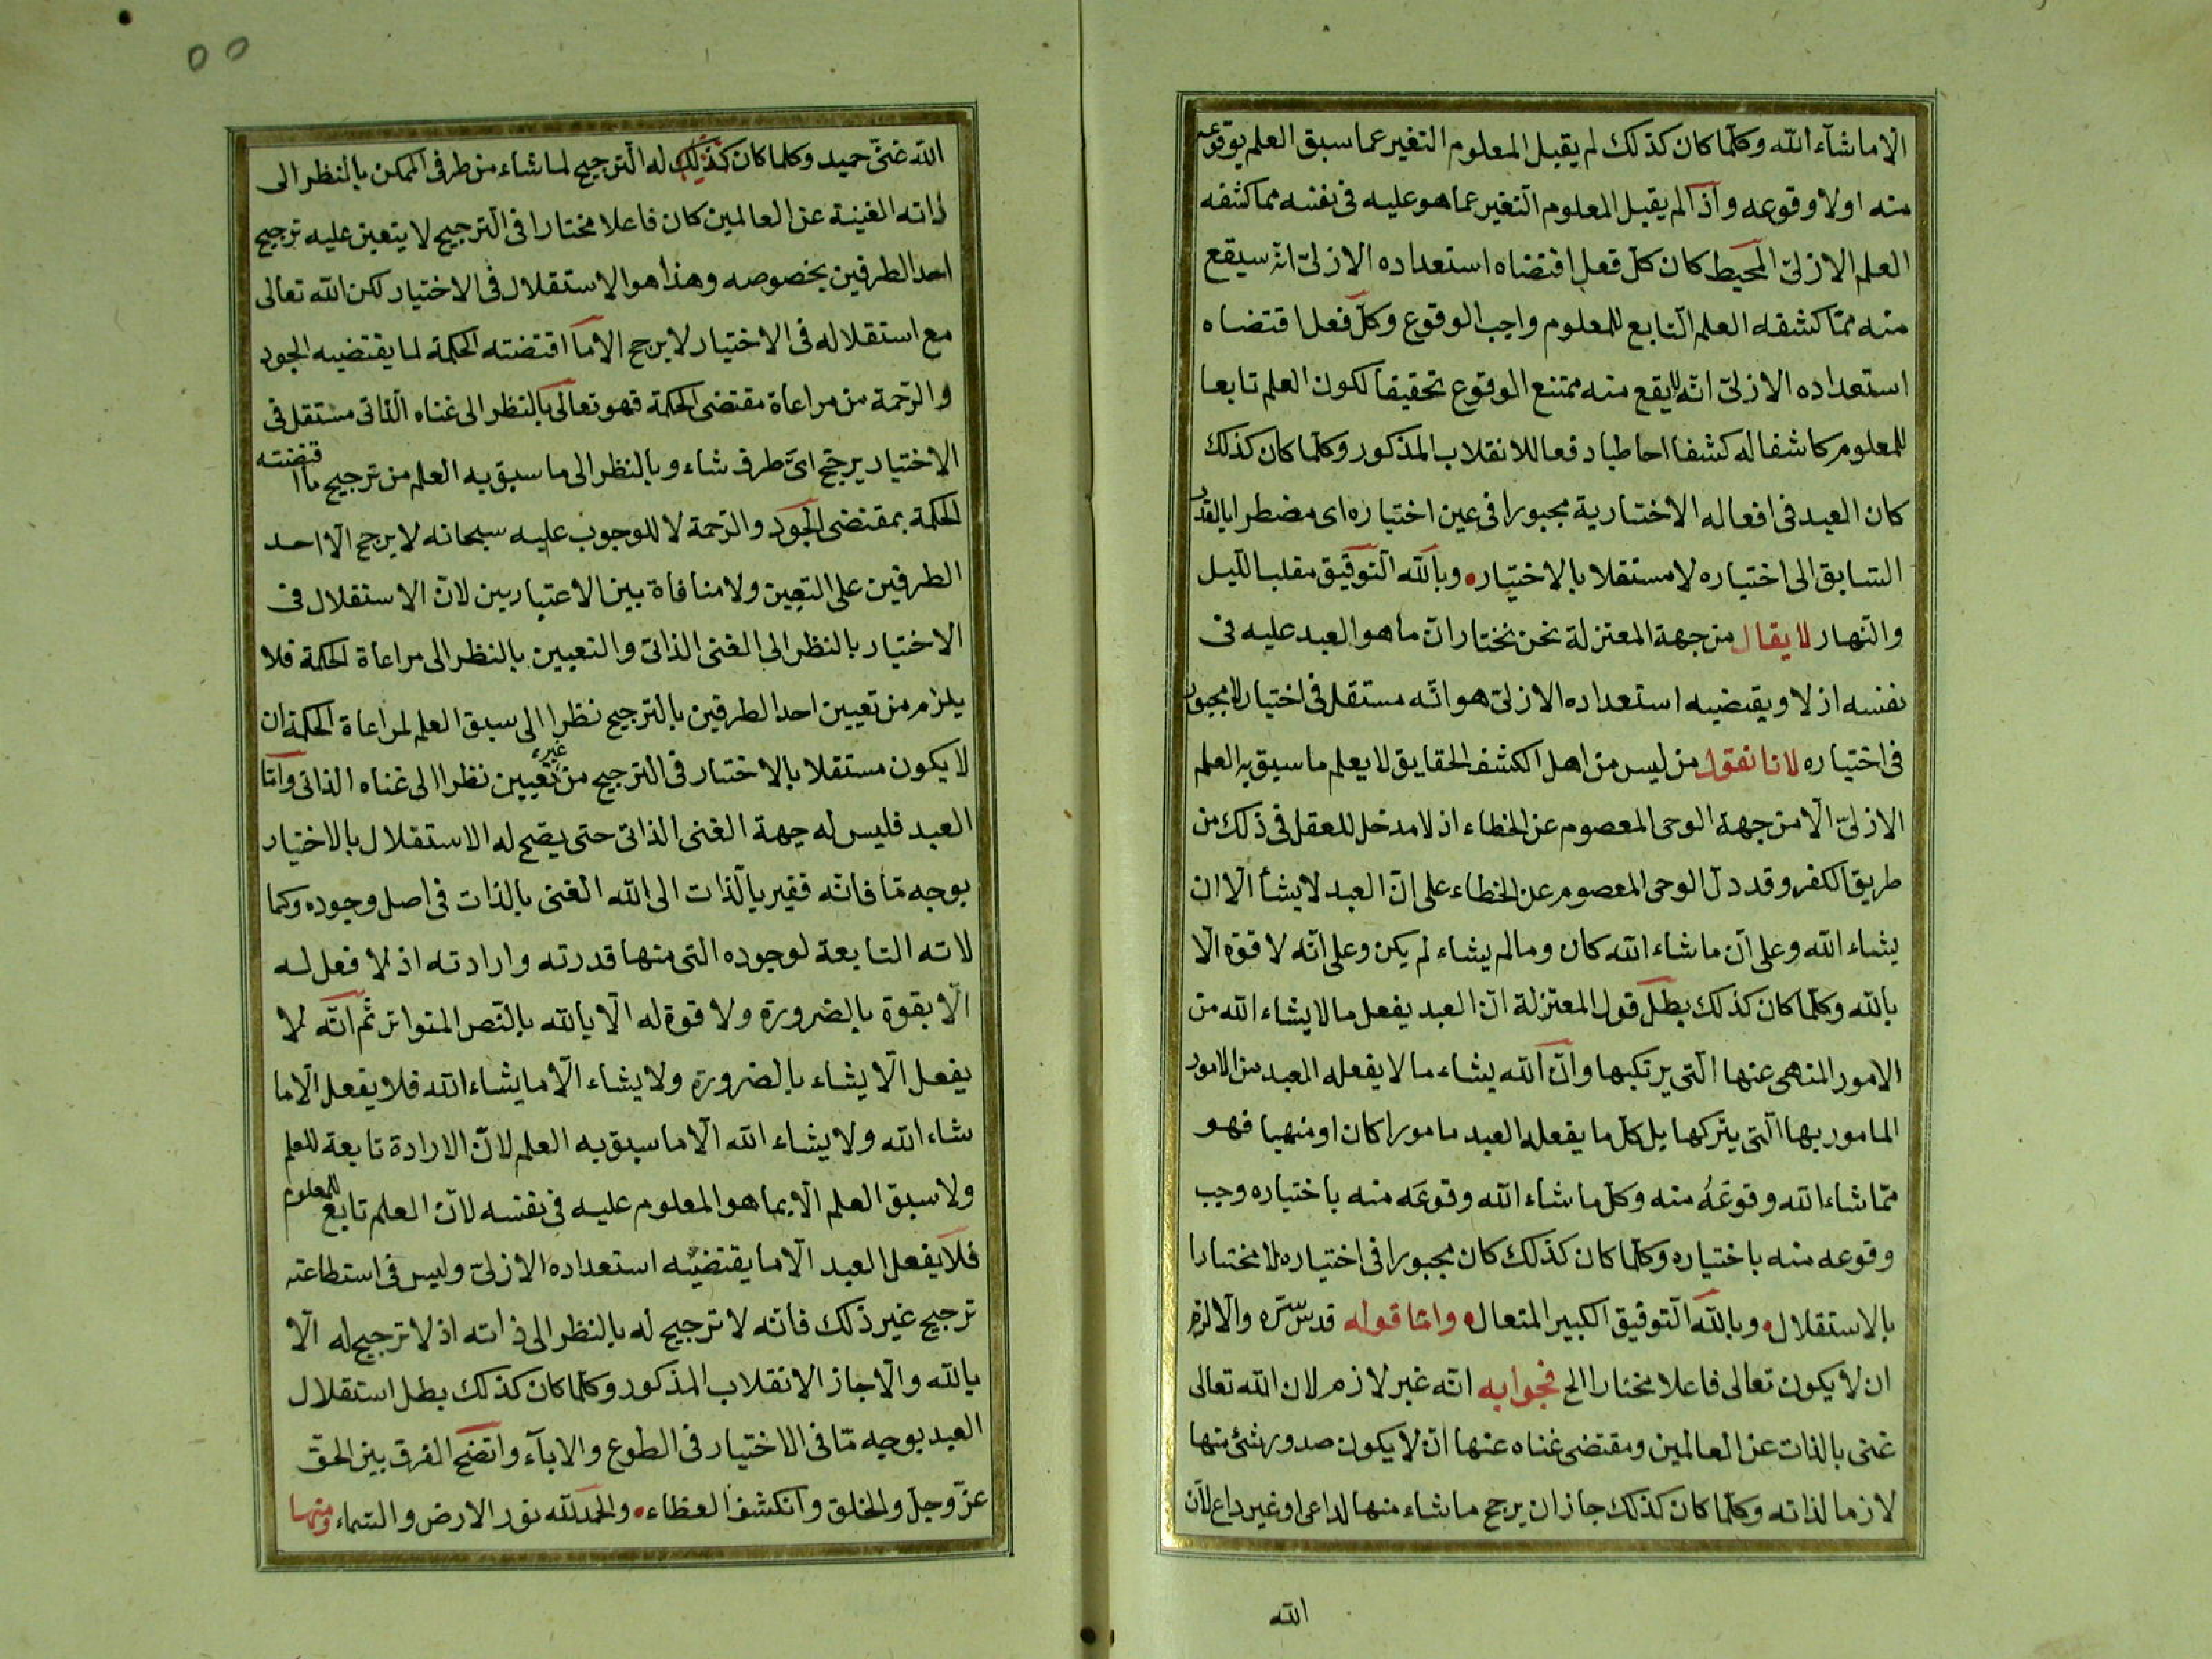 الا ما شآء الله وكلما كان كذلك لم يقبل المعلوم التغير عما سبق العلم بوقوعه
منه او لا وقوعه واذا لم يقبل المعلوم التغير عما هو عليه فى نفسه مما كشفه
العلم الازلىّ المحيط كان كلّ فعل اقتضاه استعداده الازلىّ انه سيقع
منه ممّا كشفه العلم التابع للمعلوم واجب الوقوع وكلّ فعل اقتضاه
استعداده الازلىّ انّه لا يقع منه ممتنع الوقوع تحقيقا لكون العلم تابعا
للمعلوم كاشفا له كشفا احاطيا دفعا للانقلاب المذكور وكلما كان كذلك
كان العبد فى افعاله الاختيارية مجبورا فى عين اختياره اى مضطرا بالقدر
السّابق الى اختياره لا مستقلا بالاختيار وبالله التوفيق مقلب الليل
والنهار لا يقال من جهة المعتزلة نحن نختار انّ ما هو العبد عليه فى
نفسه ازلا ويقتضيه استعداده الازلىّ هو انّه مستقل فى اختياره لا مجبور
فى اختياره لانا نقول من ليس من اهل الكشف الحقايق لا يعلم ما سبق به العلم
الازلىّ الّا من جهة الوحى المعصوم عن الخطاء اذ لا مدخل للعقل فى ذلك من
طريق الكفر وقد دلّ الوحى المعصوم عن الخطاء على انّ العبد لا يشأ الّا ان
يشاء الله وعلى انّ ما شاء الله كان وما لم يشاء لم يكن وعلى انّه لا قوّة الّا
بالله وكلّما كان كذلك بطل قول المعتزلة انّ العبد يفعل ما لا يشاء الله من
الامور المنهى عنها الّتى يرتكبها وانّ الله يشاء ما لا يفعله العبد من الامور
المامور بها الّتى يتركها بل كلّ ما يفعله العبد مامورا كان او منهيا فهو
ممّا شاء الله وقوعَهُ منه وكلّ ما شاء الله وقوعَه منه باختياره وجب
وقوعه منه باختياره وكلّما كان كذلك كان مجبورا فى اختياره لا مختارا
بالاستقلال وبالله التوفيق الكبير المتعال وامّا قوله قدس سّره والّا لزم
ان لا يكون تعالى فاعلا مختارا الخ فجوابه انّه غير لازم لان الله تعالى
غنى بالذات عن العالمين ومقتضى غناه عنها ان لا يكون صدور شئ منها
لازما لذاته وكلّما كان كذلك جاز ان يرجح ما شاء منها لداعى او غير داع لانّ
الله
الله غنىّ حميد وكلما كان كذلك له الترجيح لما شاء من طرفى الممكن بالنظر الى
ذاته الغنية عن العالمين كان فاعلا مختارا فى الترجيح لا يتعين عليه ترجيح
احد الطرفين بخصوصه وهذا هو الاستقلال فى الاختيار لكن الله تعالى
مع استقلاله فى الاختيار لا يرجح الا ما اقتضته الحكمة لما يقتضيه الجود
والرّحمة من مراعاة مقتضى الحكمة فهو تعالى بالنظر الى غناه الذاتى مستقل فى
الاختيار يرجّح اىّ طرف شاء وبالنظر الى ما سبق به العلم من ترجيح ما اقتضته
الحكمة بمقتضى الجود والرّحمة لا للوجوب عليه سبحانه لا يرجح الّا احد
الطرفين على التعين ولا منافاة بين الاعتبارين لانّ الاستقلال فى
الاختيار بالنظر الى الغنى الذاتى والتعيين بالنظر الى مراعاة الحكمة فلا
يلزم من تعيين احد الطرفين بالترجيح نظرا الى سبق العلم لمراعاة الحكمة ان
لا يكون مستقلا بالاختيار فى الترجيح من غير تعيين نظرا الى غناه الذاتى وامّا
العبد فليس له جهة الغنى الذاتى حتى يصح له الاستقلال بالاختيار
بوجه مّا فانّه فقير بالّذات الى الله الغنى بالذات فى اصل وجوده وكما
لاته التابعة لوجوده التى منها قدرته وارادته اذ لا فعل له
الّا بقوة بالضرورة ولا قوة له الّا بالله بالنّص المتواتر ثم انّه لا
يفعل الّا يشاء بالضرورة ولا يشاء الّا ما يشاء الله فلا يفعل الّا ما
شاء الله ولا يشاء الله الّا ما سبق به العلم لانّ الارادة تابعة للعلم
ولا سبق العلم الّا بما هو المعلوم عليه فى نفسه لانّ العلم تابع للمعلوم
فلا يفعل العبد الّا ما يقتضيه استعداده الازلىّ وليس فى استطاعته
ترجيح غير ذلك فانّه لا ترجيح له بالنظر الى ذاته اذ لا ترجيح له الّا
بالله والّا جاز الانقلاب المذكور وكلّما كان كذلك بطل استقلال
العبد بوجه مّا فى الاختيار فى الطوع والابآء واتضح الفرق بين الحقّ
عزّ وجلّ والخلق وانكشف الغطاء والحمد لله نور الارض والسّماء ومنها